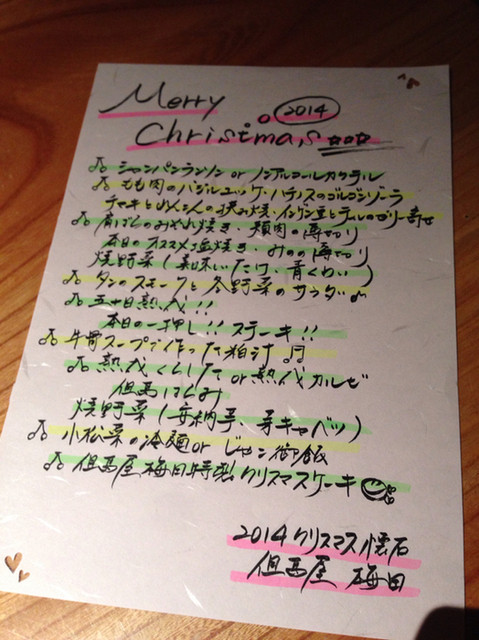 Merry
2014
Christmas ☆☆☆
シャンパンランソン or ノンアルコールカクテル
もも肉のバジルユッケ・ハチノスのゴルゴンゾーラ
チャキとめんこんの挟み焼・インゲン豆とテールのゼリー寄せ
肩ばらのみぞれ焼き・頬肉の薄切り
本日のオススメ塩焼き・みのの薄切り
焼野菜(美味いたけ、青くわい)
タンのスモークと冬野菜のサラダ♪
五十日熟成!!
本日の一押し!!ステーキ!!
牛骨スープで作った粕汁♫
熟成くらした or 熟成カルビ
但馬はらみ
焼野菜(安納芋、芽キャベツ)
小松菜の冷麺 or じゃこ御飯
但馬屋梅田特製クリスマスケーキ
2014クリスマス懐石
但馬屋 梅田